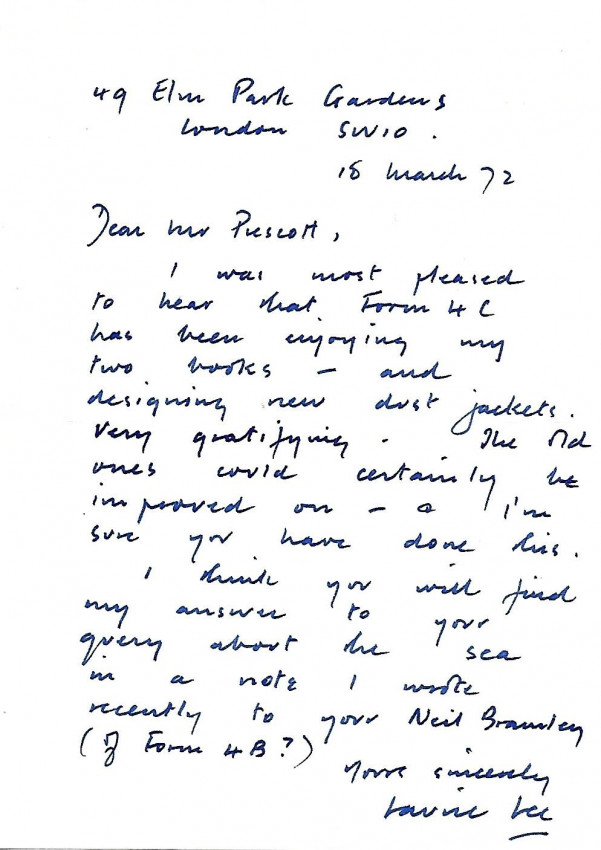 49 Elm Park Gardens
London SW10.
18 March 72
Dear Mr Prescott,
I was most pleased
to hear that Form 4C
has been enjoying my
two books – and
designing new dust jackets.
Very gratifying. The old
ones could certainly be
improved on – & I'm
sure you have done this.
I think you will find
my answer to your
query about the sea
in a note I wrote
recently to your Neil Bramley
(of Form 4B?)
Yours sincerely
Laurie Lee